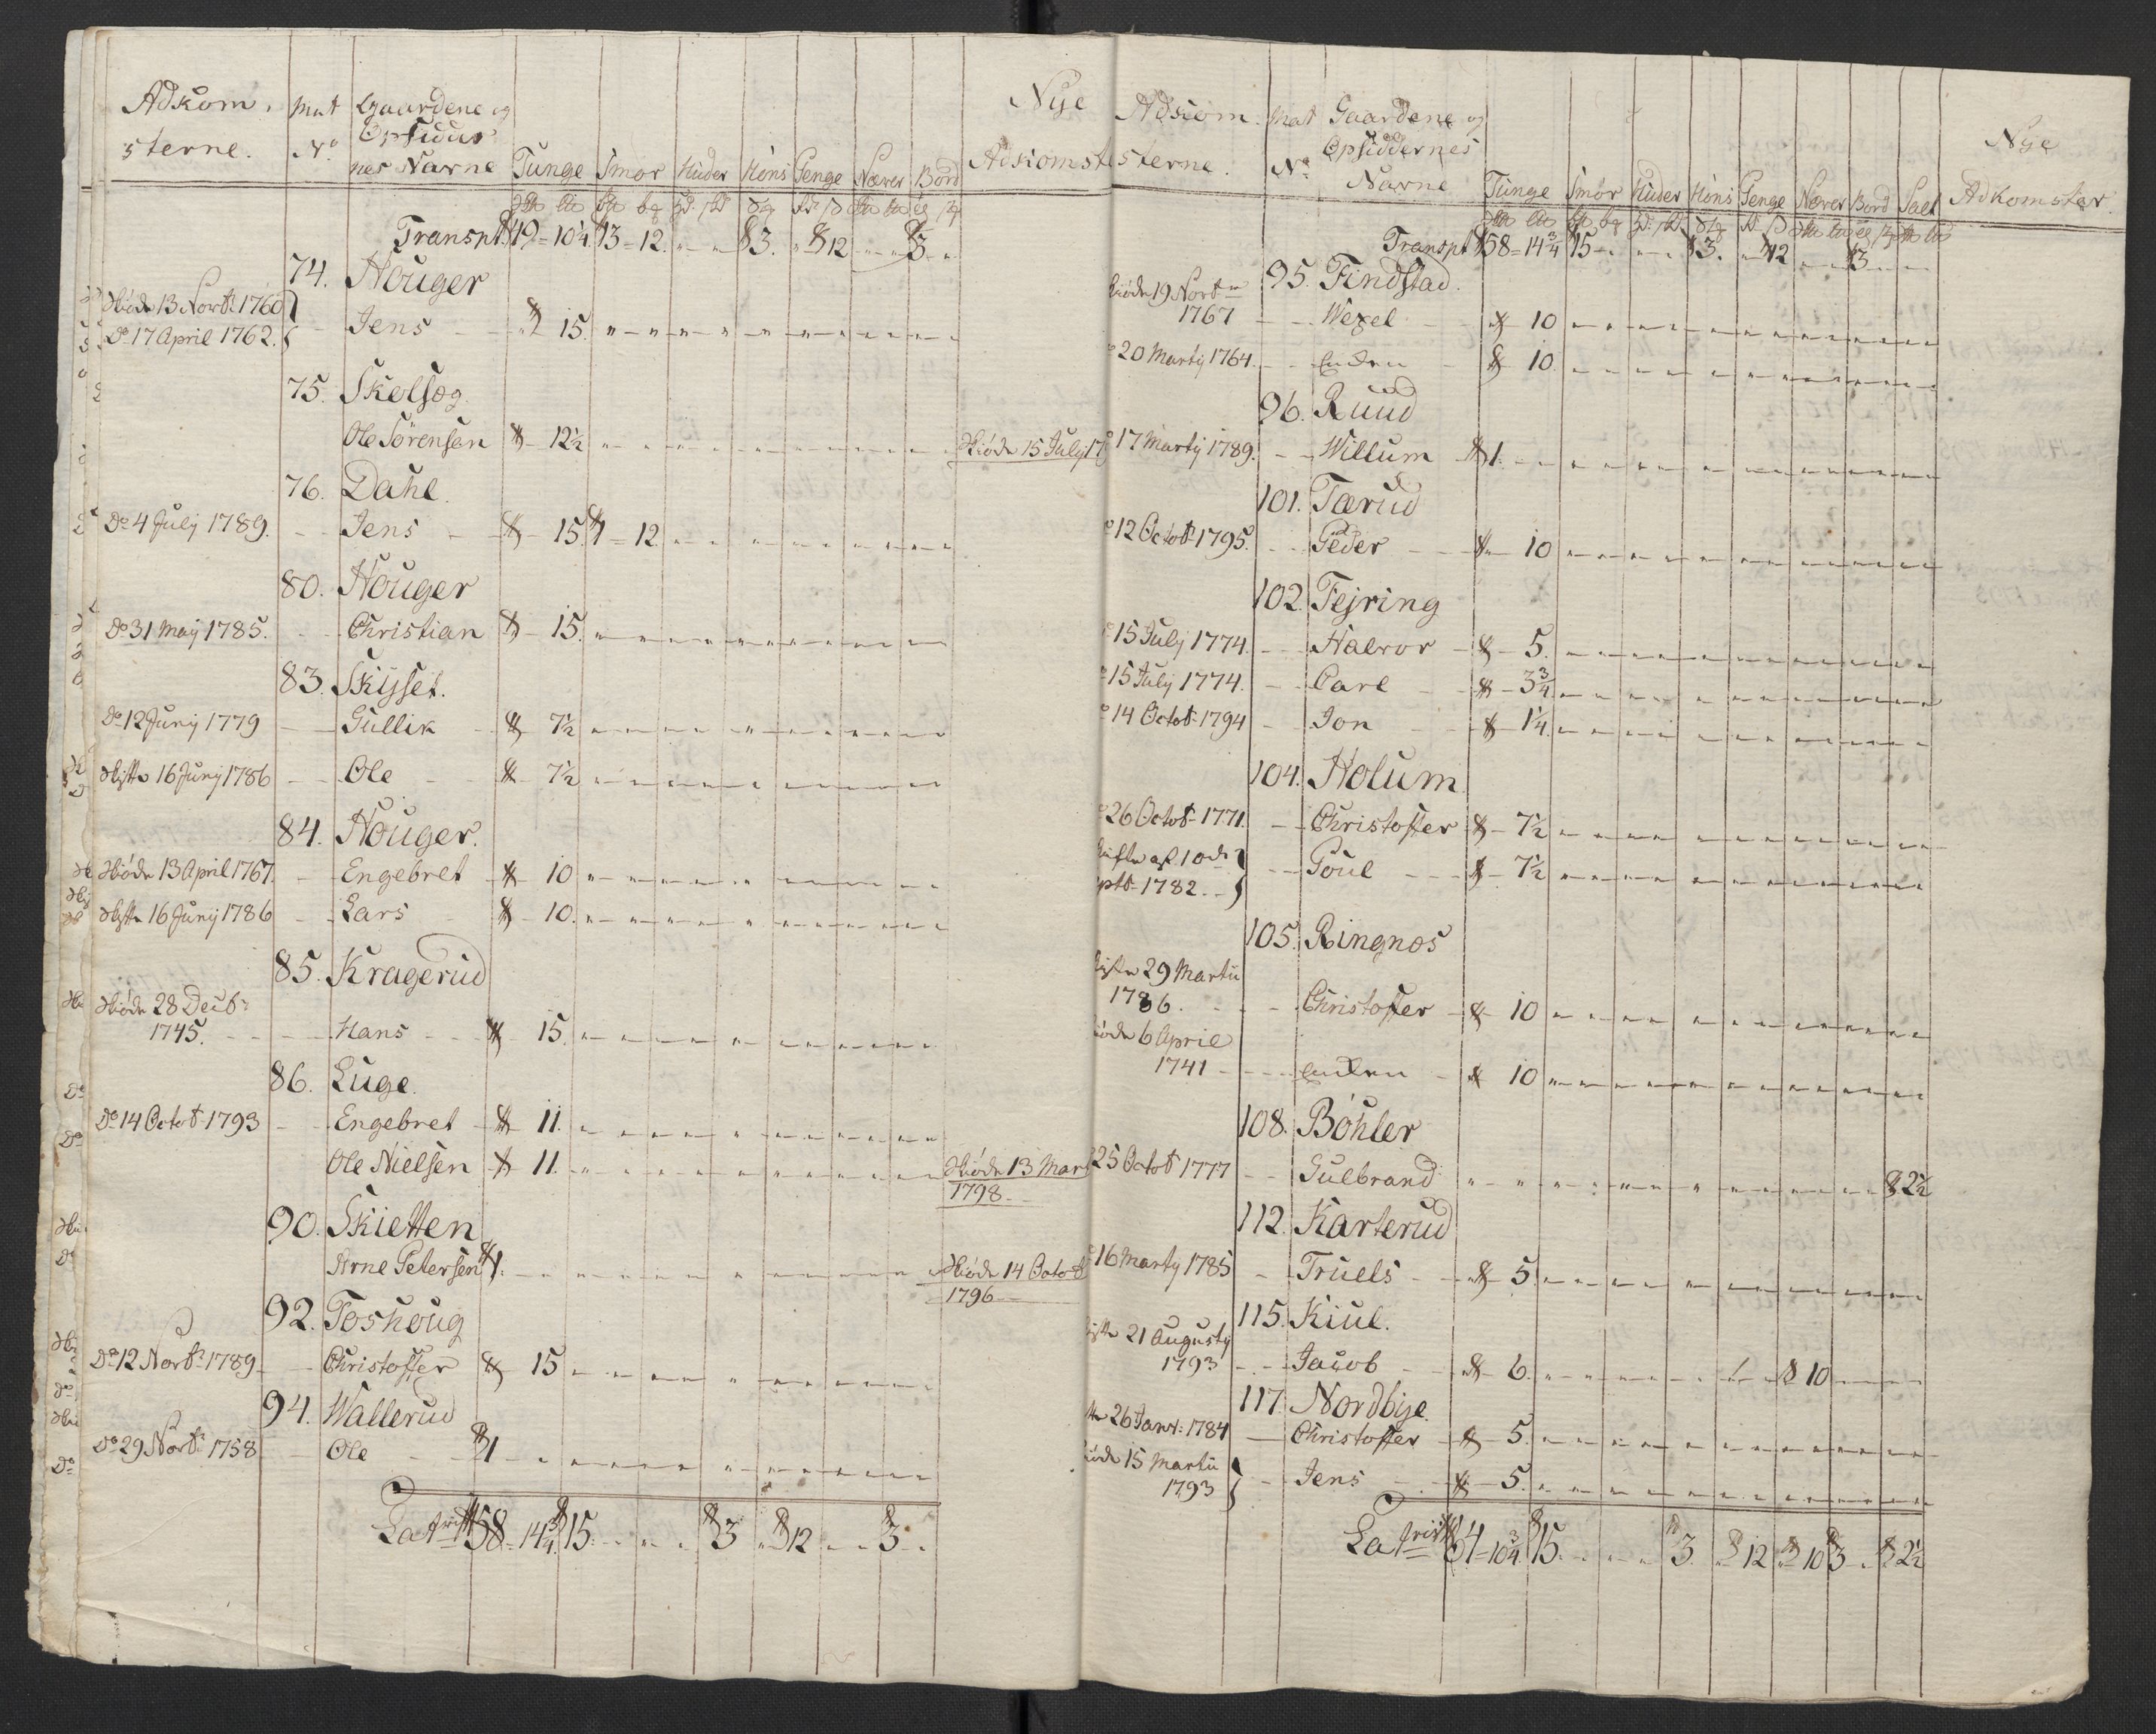 Adkom- Mat Gaardene og Nye
sterne. No Opsidder
nes Navne Tunge Smør Huder Høns Penge Næver Bord Adkomste
Transpt 19 = 10¼ 13 = 12. " " 3. " 12 " " 3 " "
74. Houger
Skiøde 13 Novbr 1760 }
Do 17 April 1762. } Jens 15.
75. Skelsøg
Ole Sørensen 12½ Skiøde 15 July 17
76. Dahl.
Do 4 July 1789. Jens 15. 1 = 12
80. Houger
Do 31 May 1785. Christian 15.
83. Skijset.
Do 12 Junj 1779 Gullik 7½
Skifte 16 Junj 1786 Ole 7½
84. Houger.
Skiøde 13 April 1767. Engebret 10
Skifte 16 Junj 1786 Lars 10.
85. Kragerud
Skiøde 28 Decbr
1745. Hans 15.
86. Luge.
Do 14 Octob 1793 Engebret 11.
Ole Nielsen 11. Skiøde 13 Mar
1798
90. Skietten
Arne Petersen 1. Skiøde 14 Octob
1796
92. Toshoug
Do 12 Novbr 1789 Christoffer 15
94. Wallerud
Do 29 Novbr 1758 Ole 1
Latris 58 = 14¾ 15. 3 12 3
Adkom- Mat Gaardene og Nye
sterne. No Opsiddernes
Navne Tunge Smør Huder Høns Penge Næver Bord Salt Adkomster.
Transpt 58 = 14¾ 15 3. 12 3
95. Findstad.
kiøde 19 Novbr
1767 Wexel 10
20 Martj 1764. Enken 10.
96. Ruud
17 Martj 1789. Willum 1.
101. Tærud
12 Octob 1795. Peder 10
102. Fejring
15 July 1774. Halvor 5.
15 July 1774. Carl 3¾
14 Octob 1794 Jon 1¼
104. Holum
26 Octob 1771. Christoffer 7½
kifte af 10de }
ptb 1782. } Poul 7½
105. Ringnæs
kifte 29 Martii
1786. Christoffer 10
iøde 6 April
1741 Enken 10
108. Bøhler
25 Octob 1777 Gulbrand 2½
112. Karterud
16 Martj 1785 Truels 5.
115. Kiul.
ifte 21 Augustj
1793 Jacob 6. 10
117. Nordbye.
te 26 Janv: 1784 Christoffer 5.
iøde 15 Martii
1793 } Jens 5.
Latris 64 = 10¾ 15. 3. 12 10 3 2½